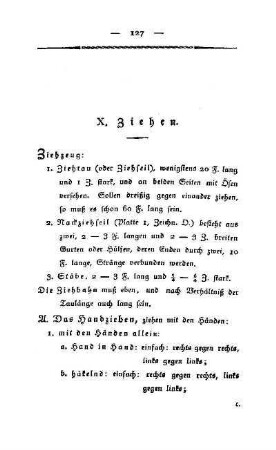 — 127 —
X. Ziehen.
Ziehzeug:
1. Ziehtau (oder Ziehseil), wenigstens 20 F. lang
und 1 Z. stark, und an beiden Seiten mit Ösen
versehen. Sollen dreißig gegen einander ziehen,
so muß es schon 60 F. lang sein.
2. Nackziehseil (Platte 1, Zeichn. D.) besteht aus
zwei, 2 — 3 F. langen und 2 — 3 Z. breiten
Gurten oder Hülsen, deren Enden durch zwei, 10
F. lange, Stränge verbunden werden.
3. Stäbe, 2 — 3 F. lang und Z. stark.
Die Ziehbahn muß eben, und nach Verhältniß der
Taulänge auch lang sein.
A. Das Handziehen, ziehen mit den Händen:
1. mit den Händen allein:
a. Hand in Hand: einfach: rechts gegen rechts,
links gegen links;
b. häkelnd: einfach: rechts gegen rechts, links
gegen links;
c.